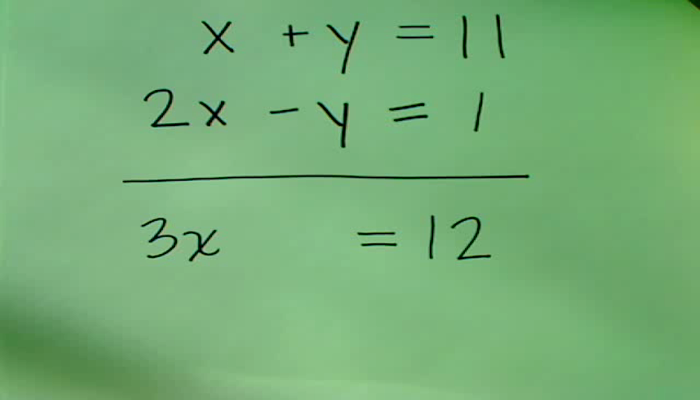 x + y = 11
2x - y = 1
3x = 12